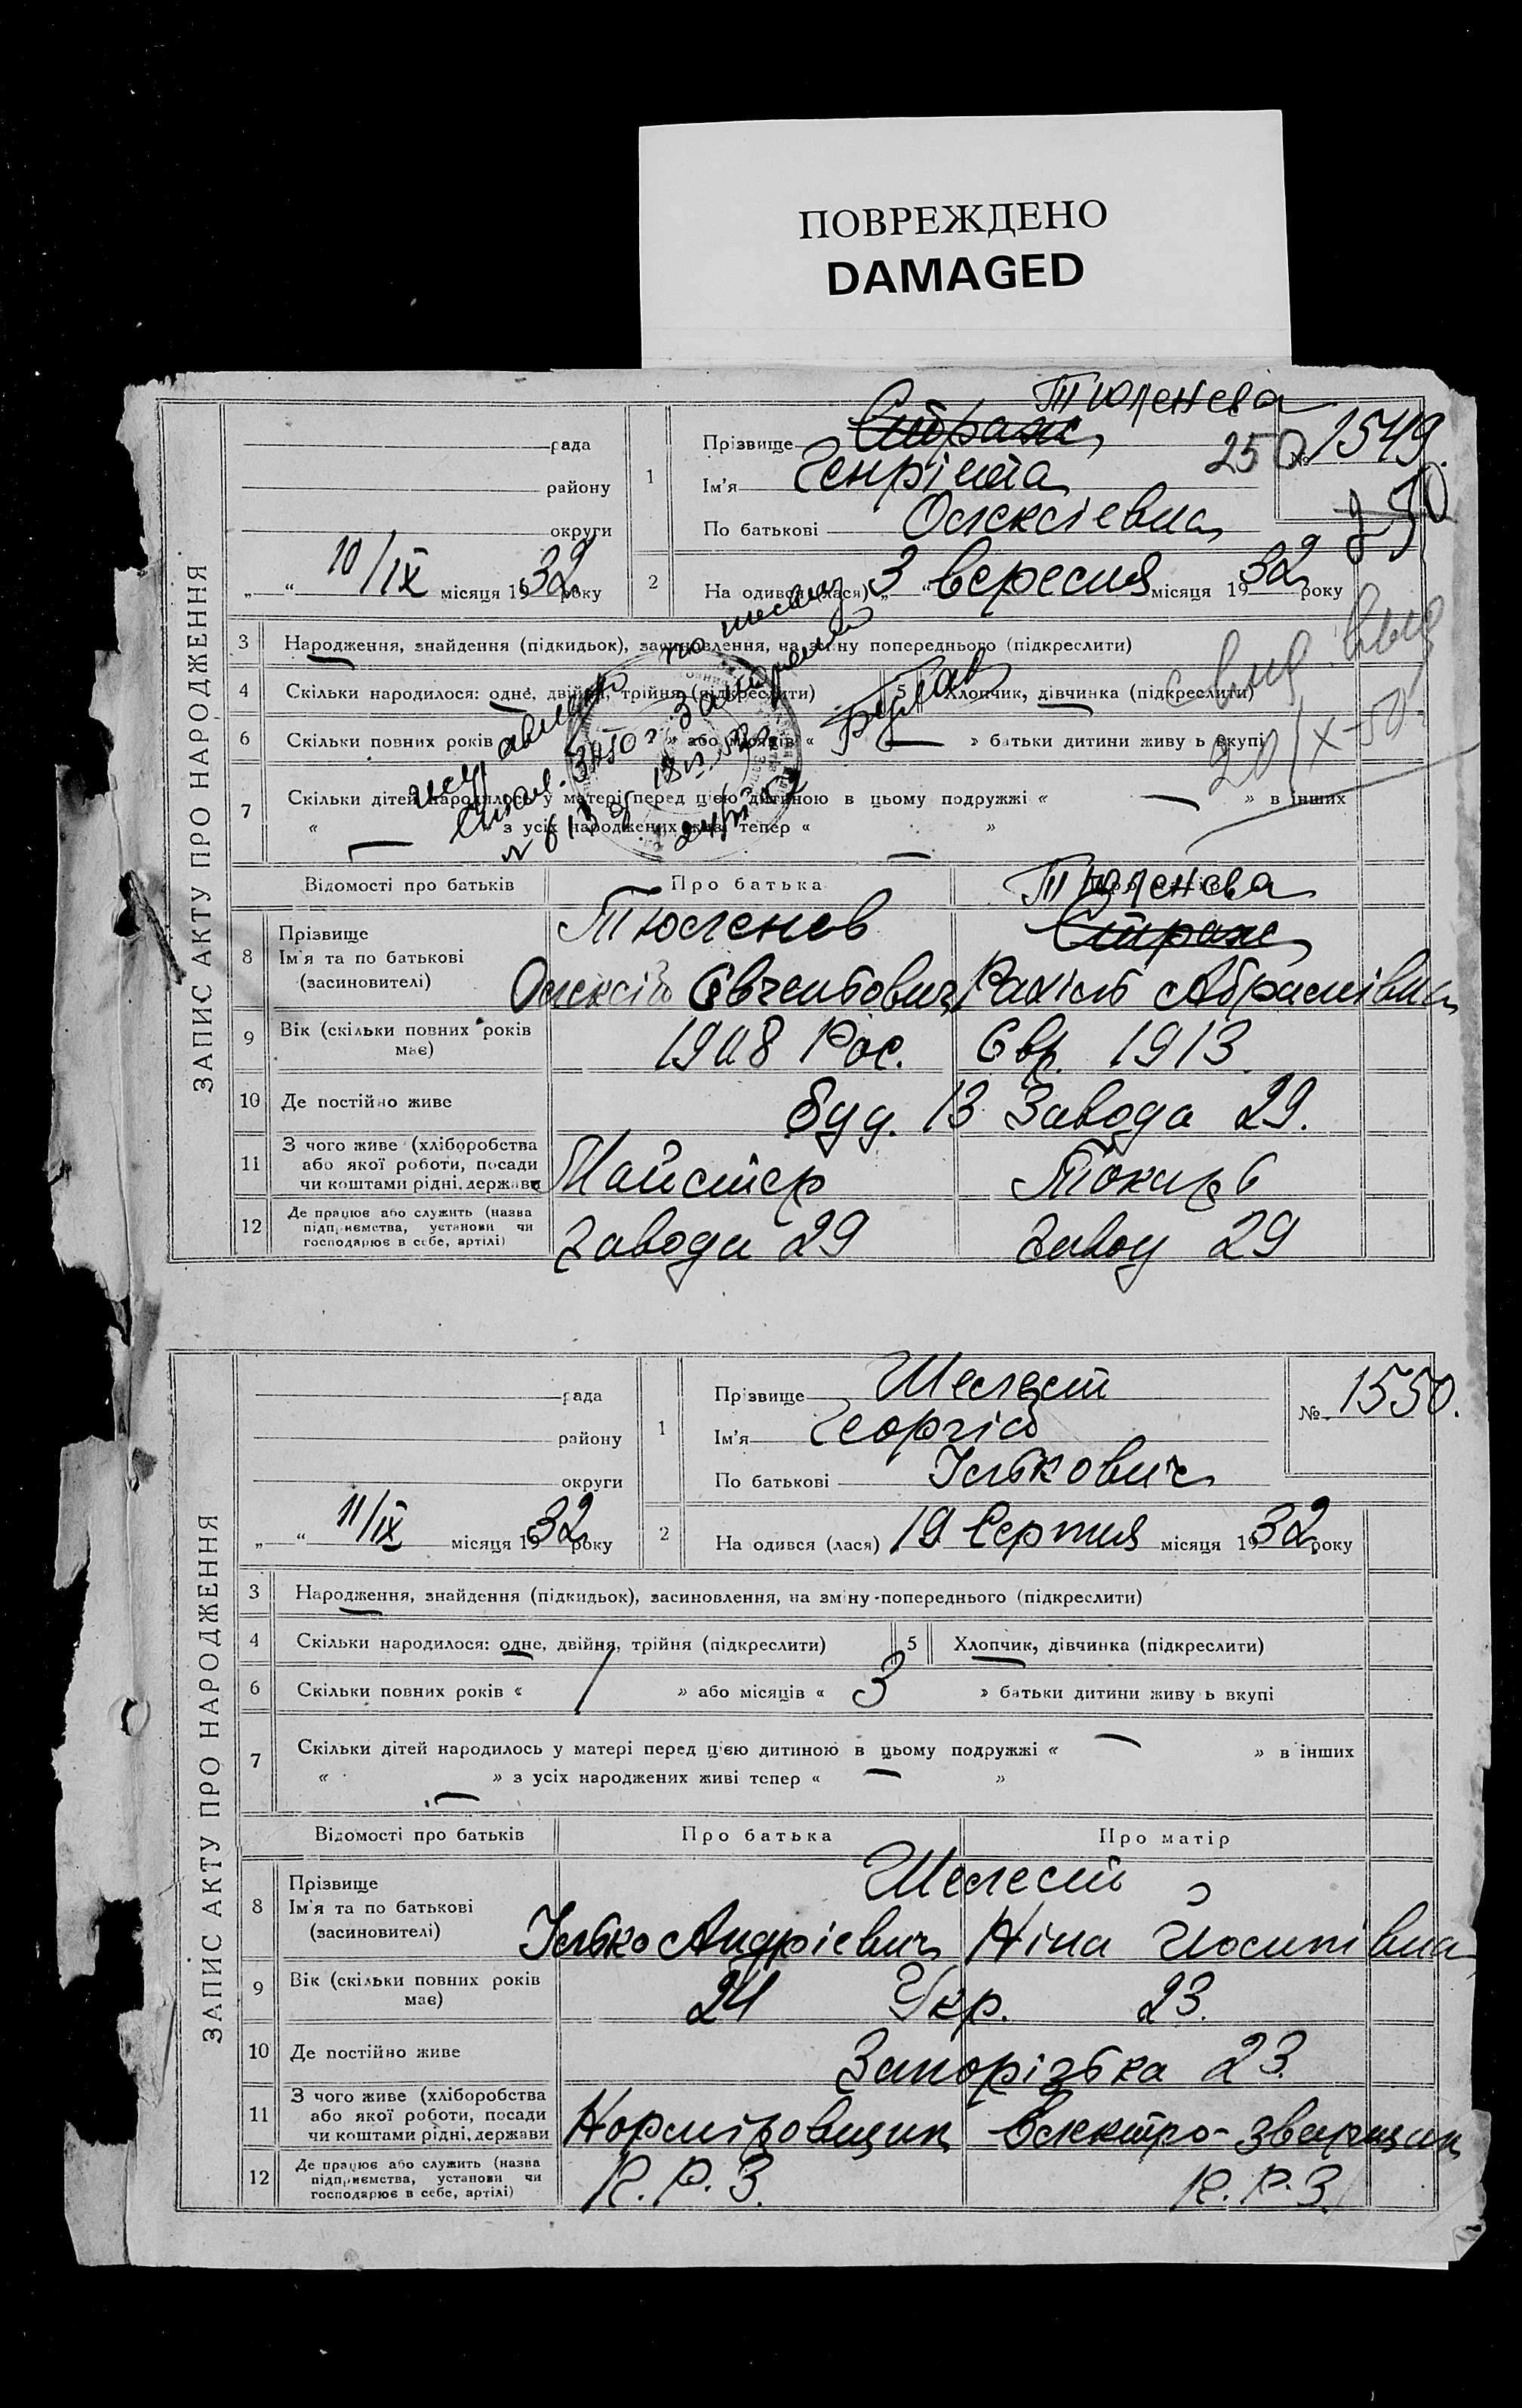 ПОВРЕЖДЕНО
DAMAGED
ЗАПИС АКТУ ПРО НАРОДЖЕННЯ
рада
району
округи
„ “ 10/IX місяця 1932 року
1 Прізвище Страж Тюленева
Ім'я Генрієта
По батькові Олексієвна
250 № 1549.
250
2 На одився (лася) „ 3 “ вересня місяця 1932 року
3 Народження, знайдення (підкидьок), засиновлення, на зміну попереднього (підкреслити)
4 Скільки народилося: одне, двійня, трійня (підкреслити) 5 Хлопчик, дівчинка (підкреслити)
20/X-50
6 Скільки повних років » або місяців « — » батьки дитини живу ь вкупі
7 Скільки дітей народилось у матері перед цією дитиною в цьому подружжі « — » в інших
« — з усіх народжених живі тепер « — »
Відомості про батьків Про батька
8 Прізвище Ім'я та по батькові (засиновителі)
Тюленев Тюленева Страж
Олексій Рахіль Абрамівна
9 Вік (скільки повних років має) 1908 Рос. Євр. 1913.
10 Де постійно живе буд. 13 Завода 29.
11 З чого живе (хліборобства або якої роботи, посади чи коштами рідні, держави Майстер Токарь
12 Де працює або служить (назва підприємства, установи чи господарює в себе, артілі) завода 29 завод 29
ЗАПИС АКТУ ПРО НАРОДЖЕННЯ
рада
району
округи
„ “ 11/IX місяця 1932 року
1 Прізвище Шелест
Ім'я Георгій
По батькові Ількович
№ 1550.
2 На одився (лася) 19 Серпня місяця 1932 року
3 Народження, знайдення (підкидьок), засиновлення, на зміну попереднього (підкреслити)
4 Скільки народилося: одне, двійня, трійня (підкреслити) 5 Хлопчик, дівчинка (підкреслити)
6 Скільки повних років « 1 » або місяців « 3 » батьки дитини живу ь вкупі
7 Скільки дітей народилось у матері перед цією дитиною в цьому подружжі « — » в інших
« — » з усіх народжених живі тепер « — »
Відомості про батьків Про батька Про матір
8 Прізвище Ім'я та по батькові (засиновителі)
Шелест
Ілько Андрієвич Ніна Йосипівна
9 Вік (скільки повних років має) 24 Укр. 23.
10 Де постійно живе Запорізька 23.
11 З чого живе (хліборобства або якої роботи, посади чи коштами рідні, держави Нормировщик Електро-зварщик
12 Де працює або служить (назва підприємства, установи чи господарює в себе, артілі) К. Р. З. К. Р. З.